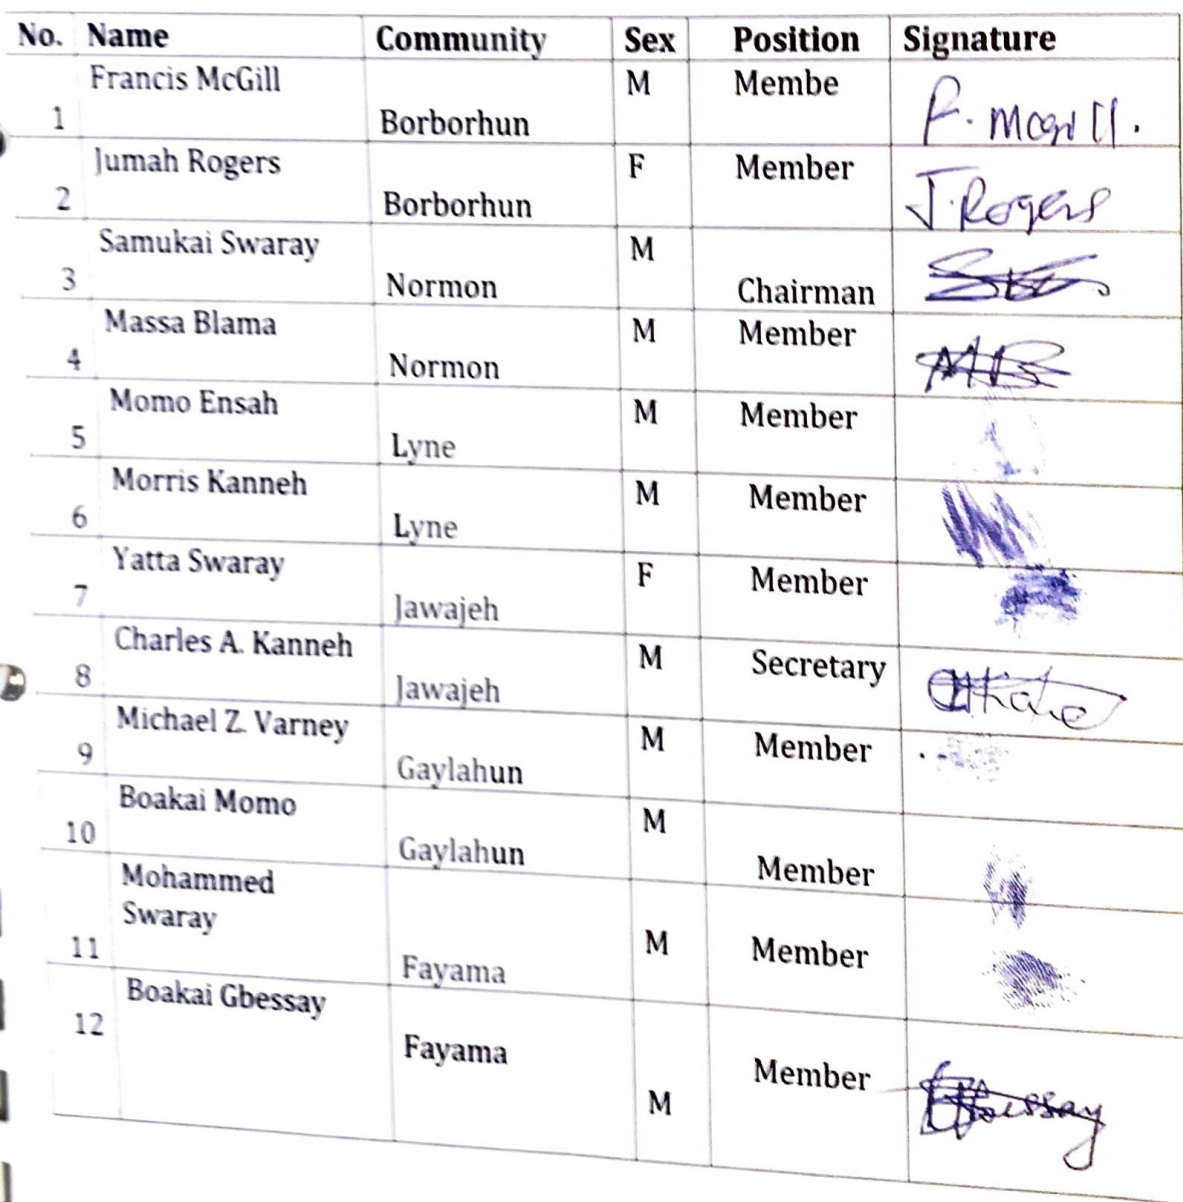 No. Name Community Sex Position Signature
1 Francis McGill Borborhun M Membe F. McGill.
2 Jumah Rogers Borborhun F Member J. Rogers
3 Samukai Swaray Normon M Chairman
4 Massa Blama Normon M Member MB
5 Momo Ensah Lyne M Member
6 Morris Kanneh Lyne M Member
7 Yatta Swaray Jawajeh F Member
8 Charles A. Kanneh Jawajeh M Secretary
9 Michael Z. Varney Gaylahun M Member
10 Boakai Momo Gaylahun M Member
11 Mohammed
Swaray Fayama M Member
12 Boakai Gbessay Fayama M Member